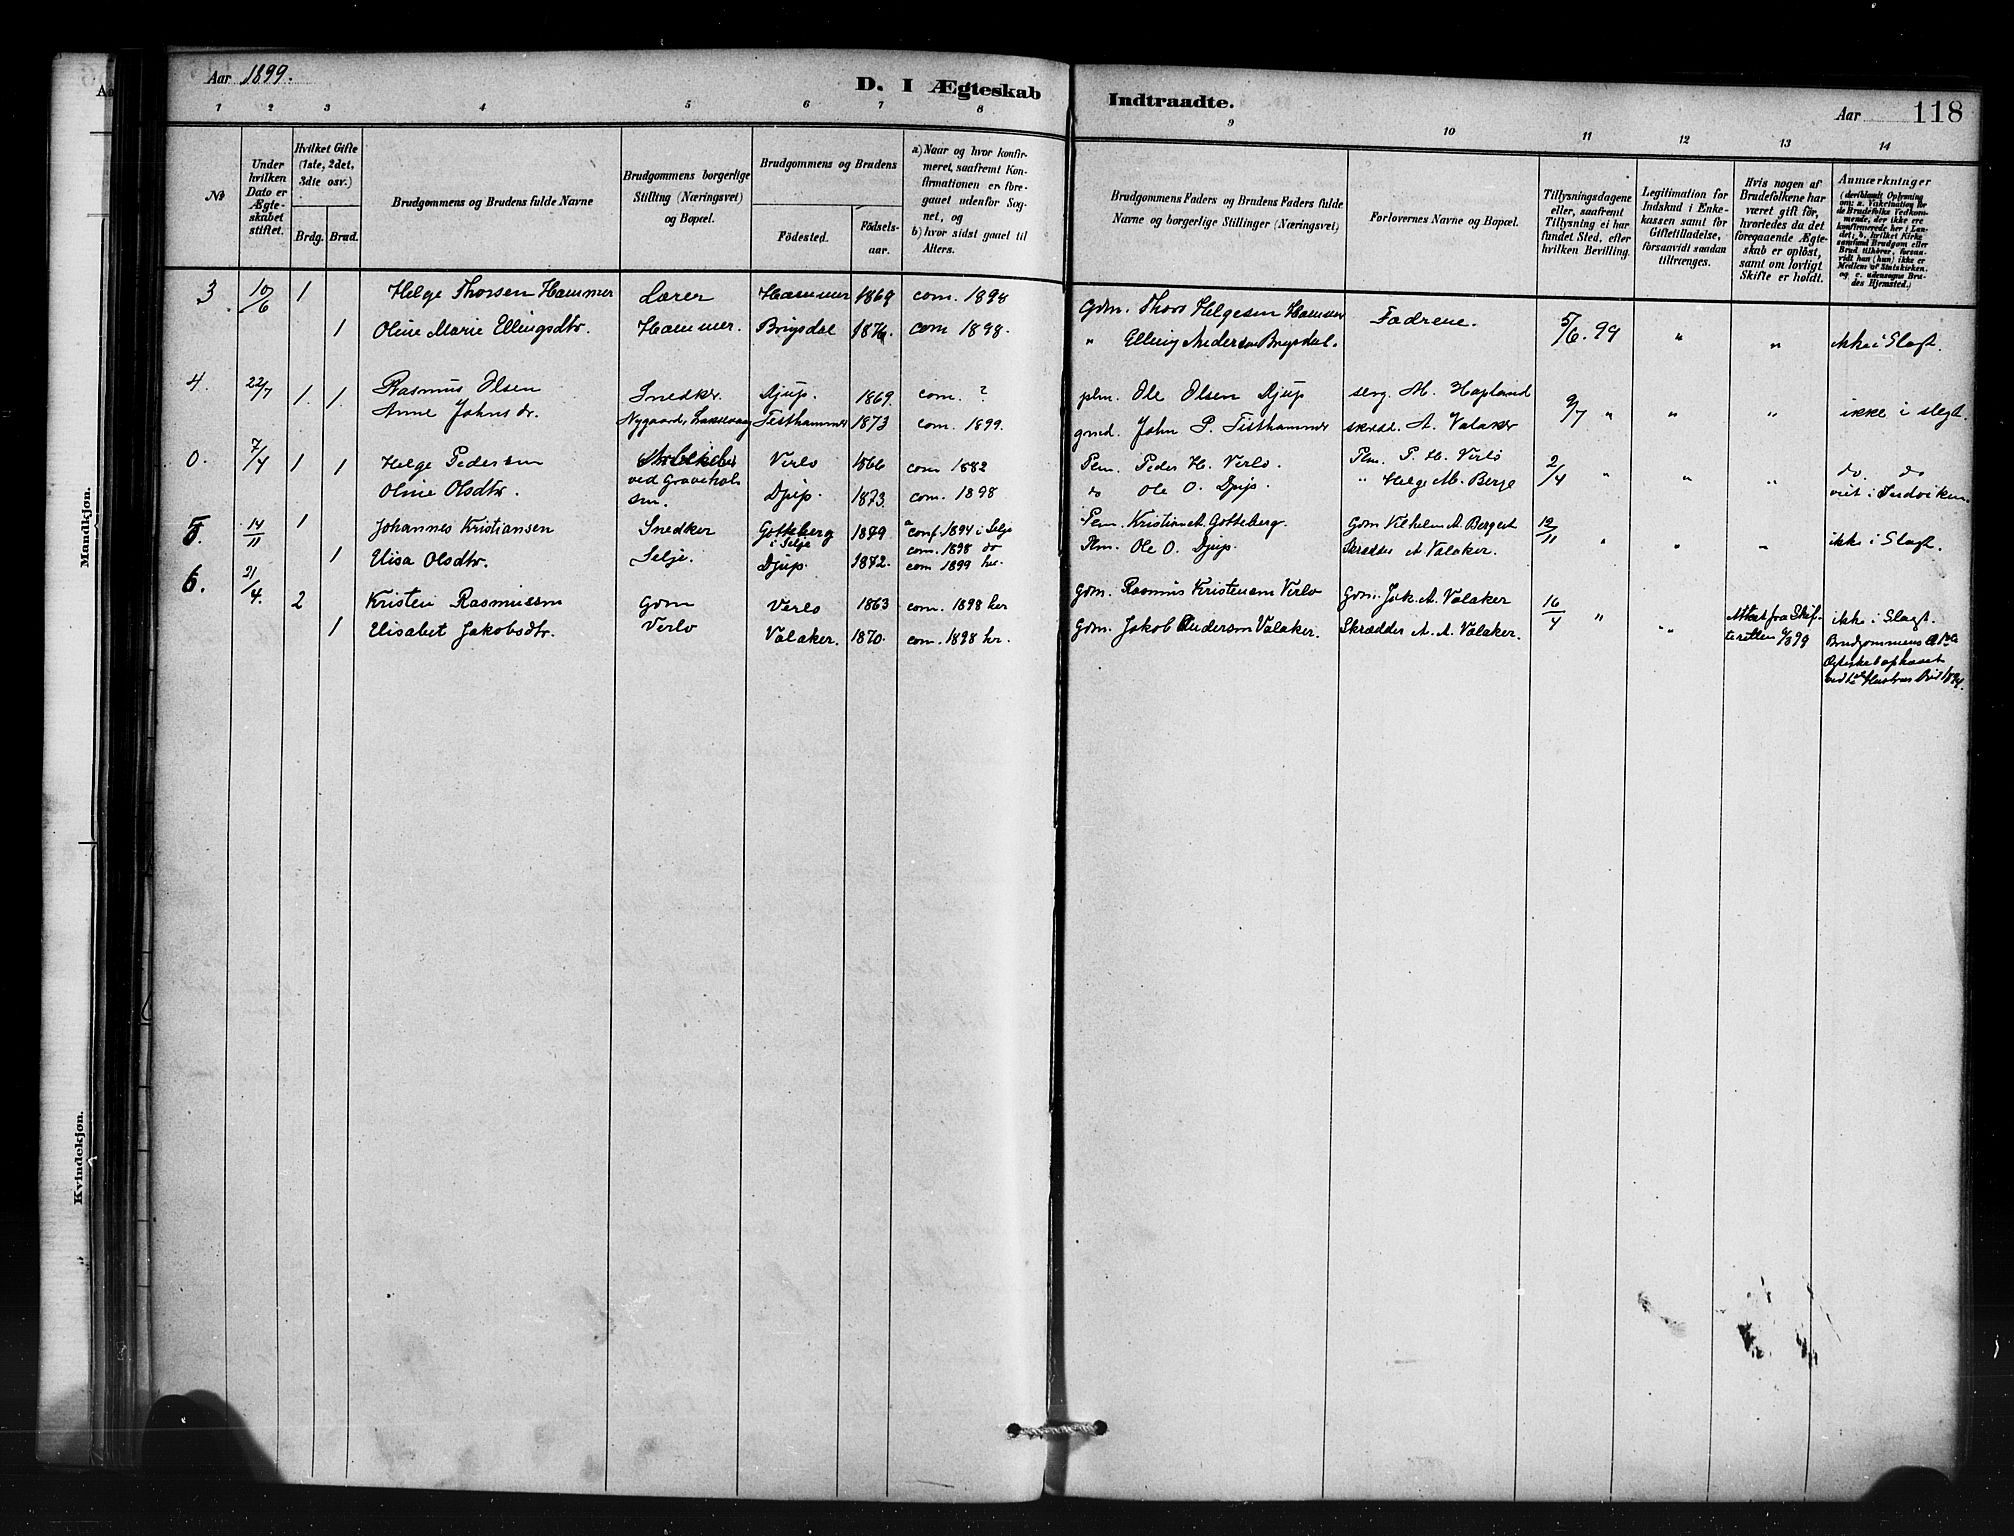 Aar 1899.
D. I Ægteskab Indtraadte.
Aar 118
1 2 3 4 5 6 7 8 9 10 11 12 13 14
No
Under hvilken Dato er Ægteskabet stiftet.
Hvilket Gifte (1ste, 2det, 3die osv.)
Brdg. Brud.
Brudgommens og Brudens fulde Navne
Brudgommens borgerlige Stilling (Næringsvei) og Bopæl.
Brudgommens og Brudens
Födested.
Födselsaar.
a) Naar og hvor konfirmeret, saafremt Konfirmationen er foregaaet udenfor Sognet, og
b) hvor sidst gaaet til Alters.
Brudgommens Faders og Brudens Faders fulde Navne og borgerlige Stillinger (Næringsvei)
Forlovernes Navne og Bopæl.
Tillysningsdagene eller, saafremt Tillysning ei har fundet Sted, efter hvilken Bevilling.
Legitimation for Indskud i Enkekassen samt for Giftetilladelse, forsaavidt saadan tiltrænges.
Hvis nogen af Brudefolkene har været gift för, hvorledes da det foregaaende Ægteskab er oplöst, samt om lovligt Skifte er holdt.
Anmærkninger
(deriblandt Oplysning om: a. Vakcination for de Brudefolks Vedkommende, der ikke ere konfirmerede her i Landet; b. hvilket Kirkesamfund Brudgom eller Brud tilhörer, forsaavidt han (hun) ikke er Medlem af Statskirken, og c. udensogns Brudes Hjemsted.)
3 10/6 1 Helge Thorsen Hammer Lærer Hammer 1869 com. 1898 Gdm. Thor Helgesen Hammer Fædrene. 5/6. 99 " " ikke i Slægt.
1 Oline Marie Ellingsdtr. Hammer. Brigsdal 1876 com 1898. " Elling Andersen Brigsdal.
4. 22/7 1. 1. Rasmus Olsen Snedkr. Djup. 1869. com. ? plm. Ole Olsen Djup serg. M. Hopland 9/7 " " " ikke i slegt.
Anne Johnsdr. Nygaard, Laksevaag Tisthammer 1873 com. 1899. gmd. John P. Tisthammer skredd. A. Valaker
0. 7/4 1 1 Helge Pedersen ved Gravehalsen. Verlo 1866 com. 1882 Plm. Peder H. Verlo. Plm. P. H. Verlo 2/4 " " " do do
Oline Olsdtr. Djup. 1873. com. 1898 do Ole O. Djup. " Helge M. Berge viet i Indviken
5. 14/11 1 Johannes Kristiansen Snedker Gotteberg i Selje 1879 a conf. 1894 i Selje com. 1898 do Plm. Kristian A. Gotteberg. Gdm Vilhelm A. Berget 12/11 " " " ikke i Slægt.
1 Elisa Olsdtr. Selje. Djup. 1872. com 1899 her. Plm. Ole O. Djup. Skrædder A Valaker.
6. 21/4. 2 Kristen Rasmussen Gdm Verlo 1863 com. 1898 her Gdm. Rasmus Kristensen Verlo Gdm. Jak. A. Valaker 16/4 " " Attest fra Skifteretten ikke i Slægt.
1 Elisabet Jakobsdtr. Verlo Valaker. 1870. com. 1898 her. Gdm. Jakob Anderson Valaker. Skrædder A. A. Valaker. Brudgommens
Ægteskab ophævet
ved Hustrus Död 1894.
Mandkjøn.
Kvindekjøn.